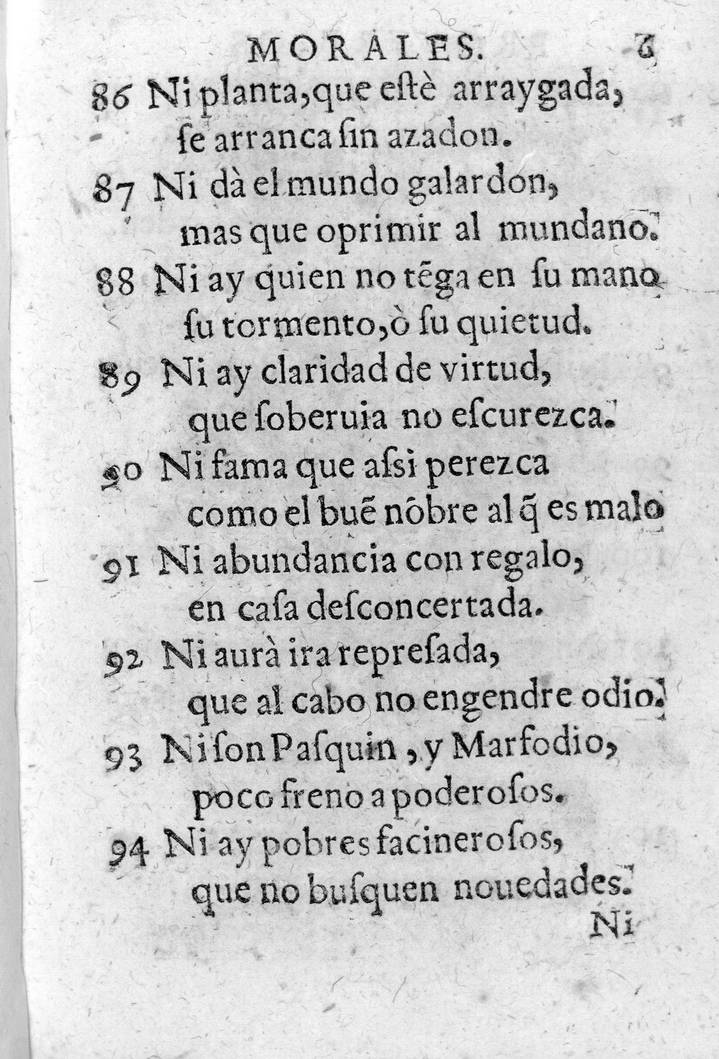 MORALES. 6
86 Ni planta, que eſtè arraygada,
ſe arranca ſin azadon.
87 Ni dà el mundo galardon,
mas que oprimir al mundano.
88 Ni ay quien no tẽga en ſu mano
ſu tormento, ò ſu quietud.
89 Ni ay claridad de virtud,
que ſoberuia no eſcurezca.
90 Ni fama que aſsi perezca
como el buẽ nõbre al q̃ es malo
91 Ni abundancia con regalo,
en caſa deſconcertada.
92 Ni aurà ira repreſada,
que al cabo no engendre odio.
93 Ni ſon Paſquin, y Marfodio,
poco freno a poderoſos.
94 Ni ay pobres facineroſos,
que no buſquen nouedades.
Ni